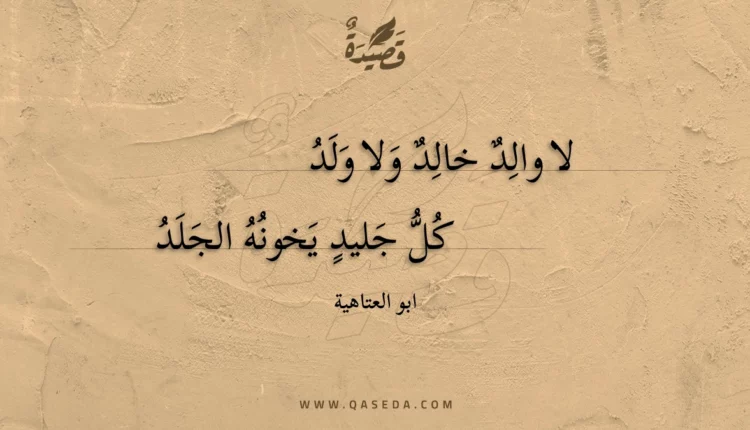 قَصِيْدَةٌ
لا والِدٌ خالِدٌ وَلا وَلَدُ
كُلُّ جَليدٍ يَخونُهُ الجَلَدُ
ابو العتاهية
WWW.QASEDA.COM